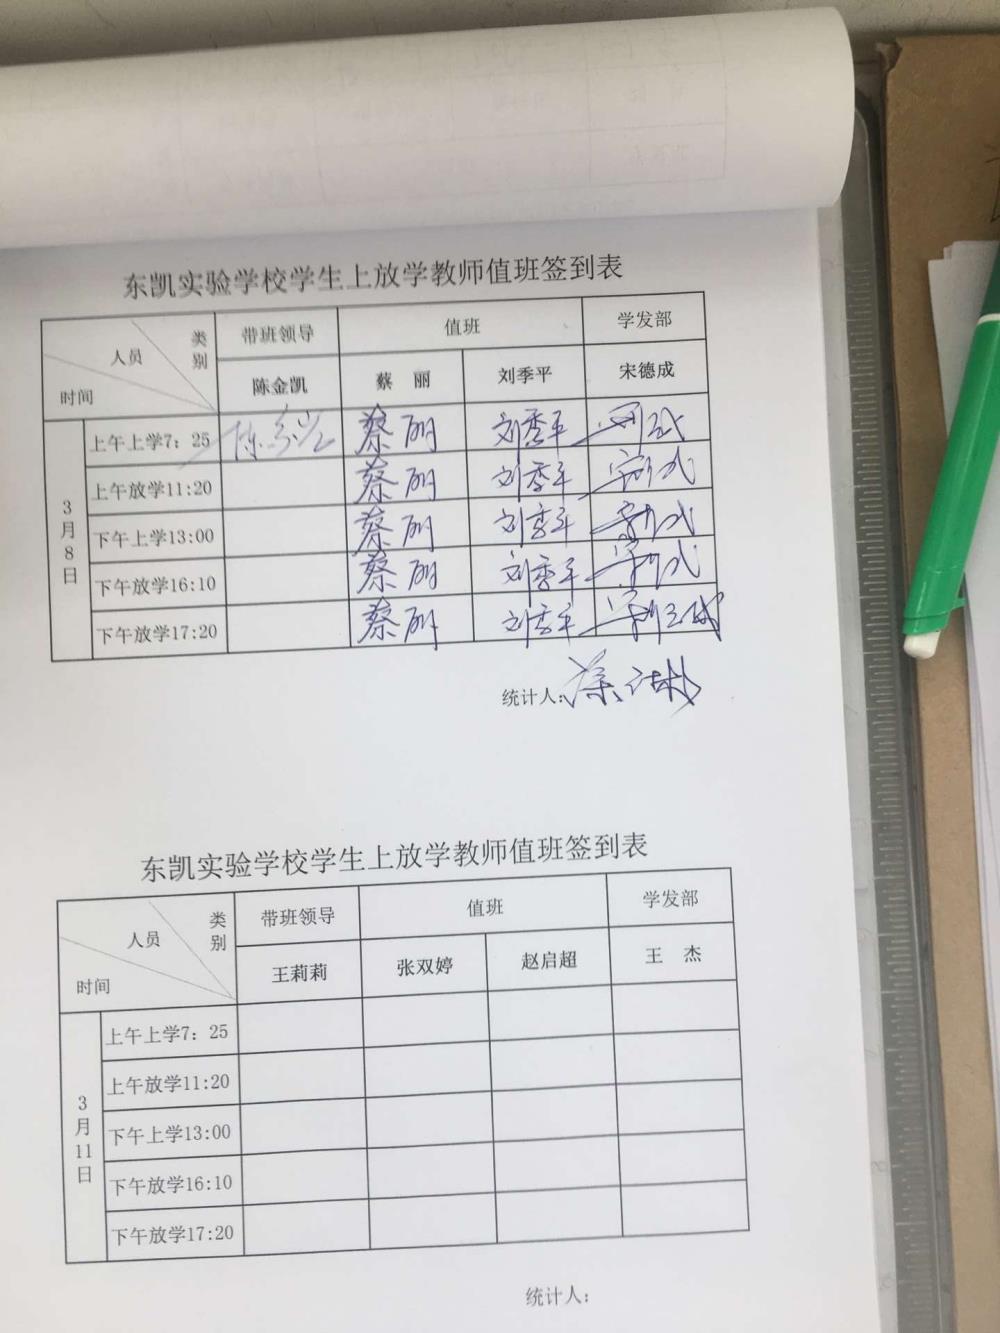 东凯实验学校学生上放学教师值班签到表
类别 人员 时间 带班领导 值班 学发部
陈金凯 蔡 丽 刘季平 宋德成
3月8日
上午上学7：25 陈金凯 蔡丽 刘季平
上午放学11:20 蔡丽 刘季平
下午上学13:00 蔡丽 刘季平
下午放学16:10 蔡丽 刘季平
下午放学17:20 蔡丽 刘季平
统计人：
东凯实验学校学生上放学教师值班签到表
类别 人员 时间 带班领导 值班 学发部
王莉莉 张双婷 赵启超 王 杰
3月11日
上午上学7：25
上午放学11:20
下午上学13:00
下午放学16:10
下午放学17:20
统计人：